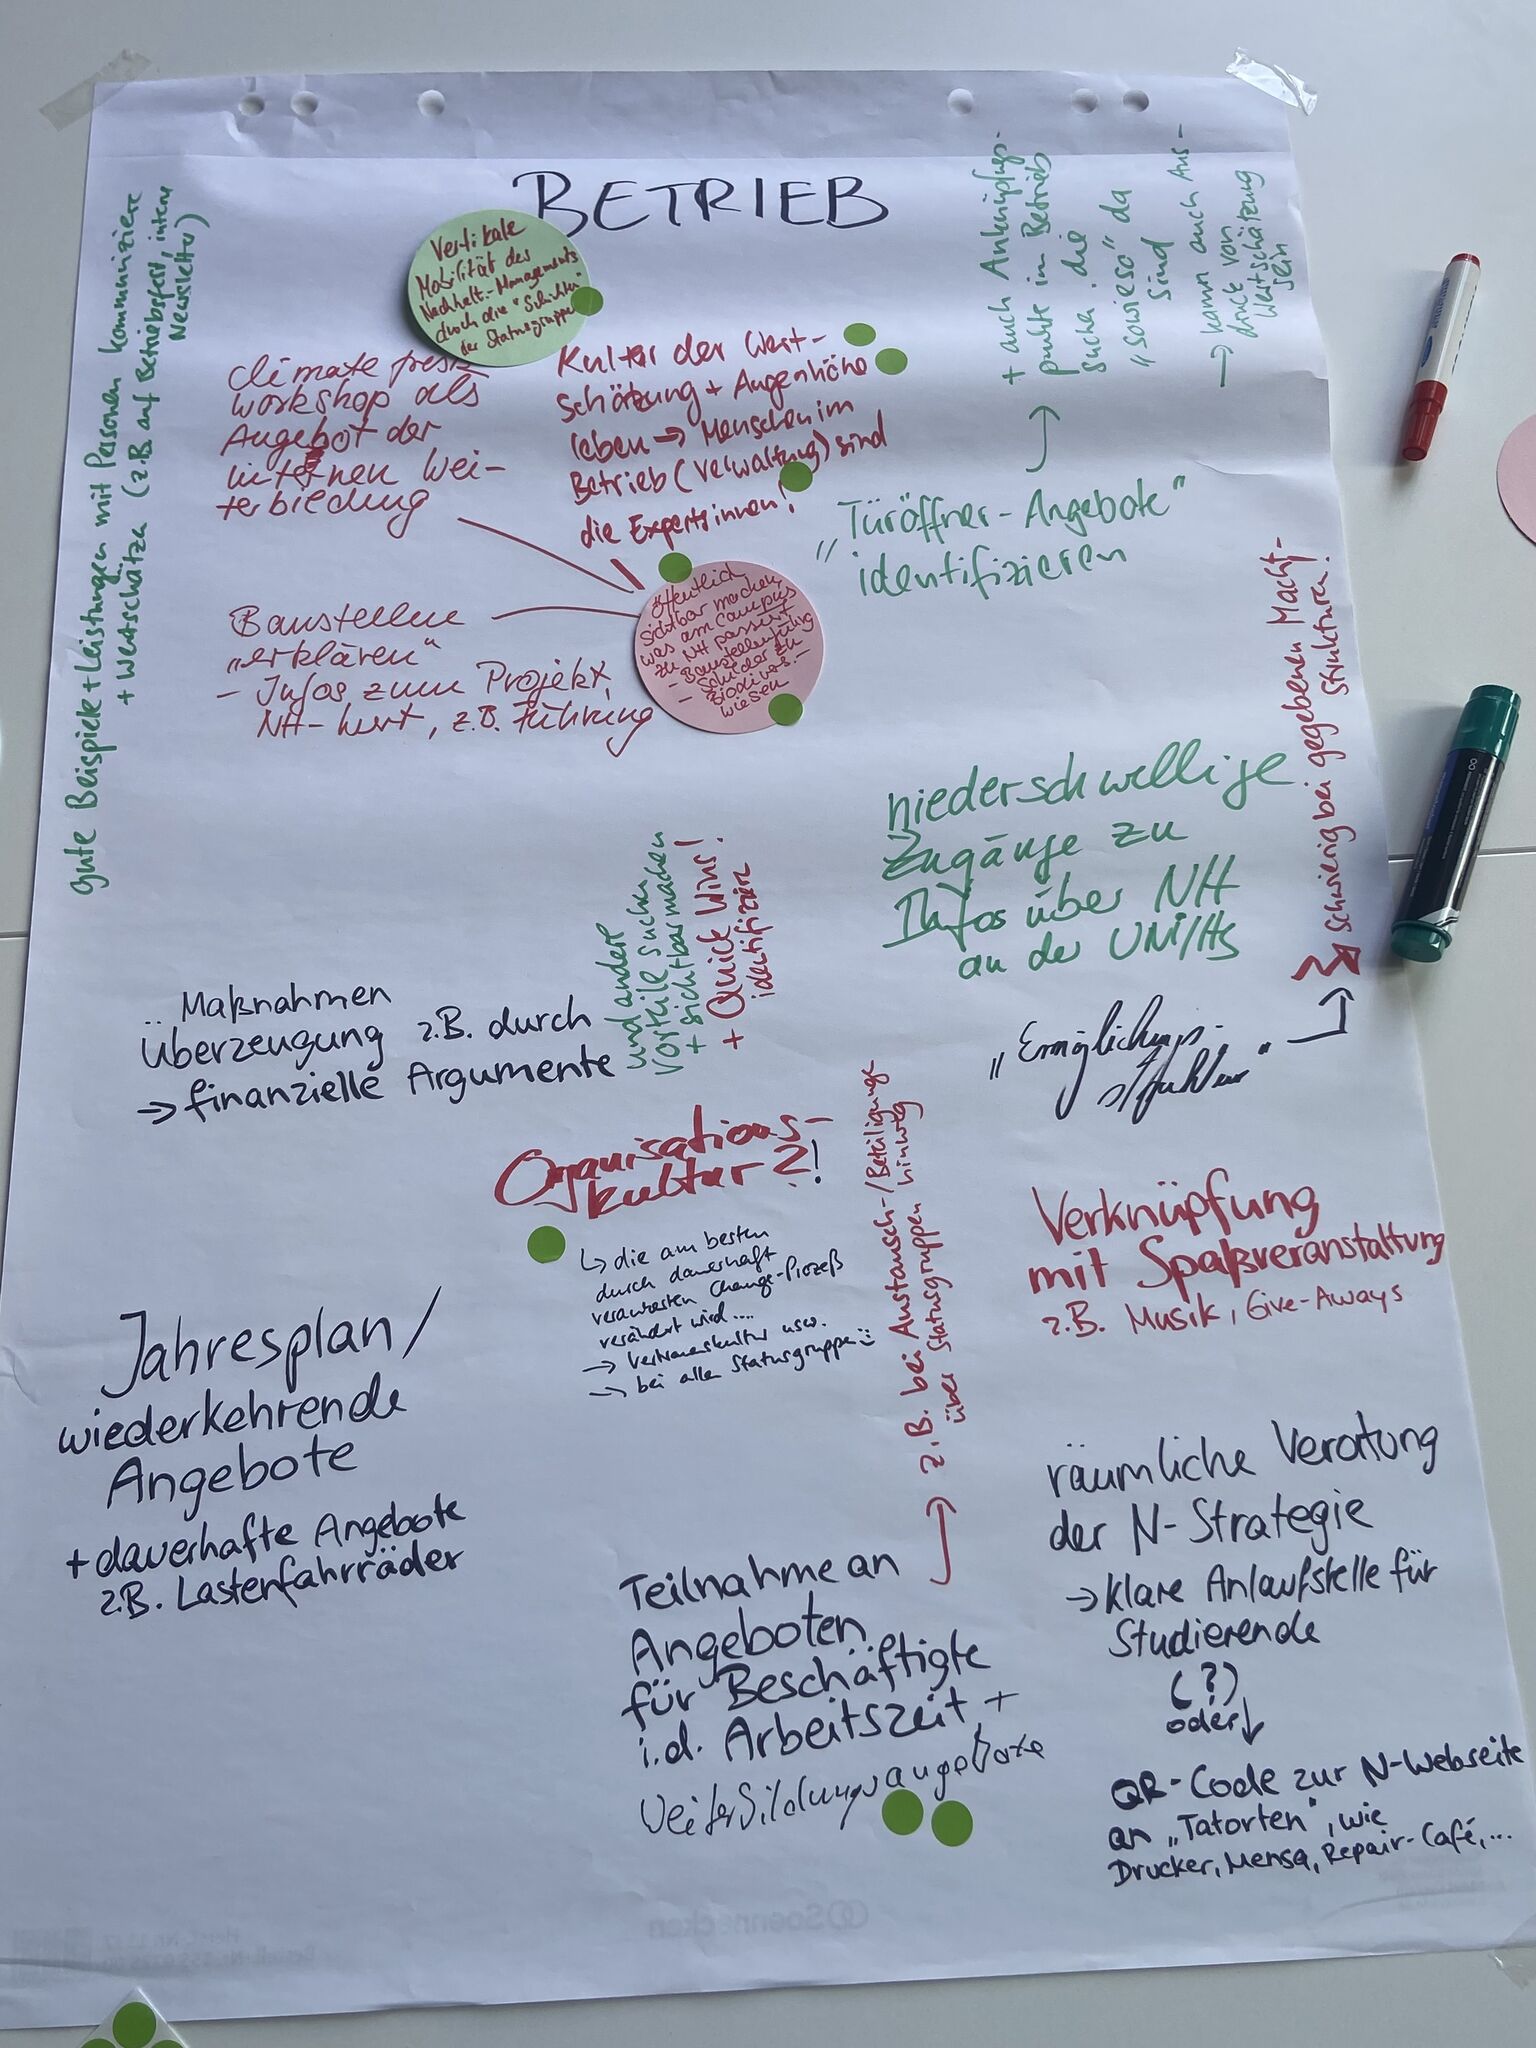 BETRIEB
Vertikale
Mobilität des
Nachhalt.-Managements
durch die "Schichten"
der Statusgruppen
gute Beispiele + Leistungen mit Personen kommuniziere
+ wertschätze (z.B. auf Betriebsfest, intern
Newsletter)
climate fresk
workshop als
Angebot der
internen Wei-
terbiedung
Kultur der Wert-
schätzung + Augenhöhe
leben → Menschen im
Betrieb (Verwaltung) sind
die Expertsinnen!
+ auch Anknüpfungs-
punkte im Betrieb
suchen, die
"sowieso" da
sind
→ kann auch Aus-
druck von
Wertschätzung
sein
"Türöffner-Angebote"
identifizieren
Baustellen
"erklären"
- Infos zum Projekt,
NH-Wert, z.B. Führung
Öffentlich
sichtbar machen,
was am Campus
zu NH passiert
- Baustellenführung
- Schilder zu
Biodivers.-
wiesen
niederschwellige
Zugänge zu
Infos über NH
an der UNI/HS
schwierig bei gegebenen Macht-
strukturen!
"Ermöglichungs-
struktur"
Maßnahmen
Überzeugung z.B. durch
→ finanzielle Argumente
und andere
Vorteile suchen
+ sichtbar machen
+ Quick Wins!
identifiziere
Organisations-
kultur?!
↳ die am besten
durch dauerhaft
verankerten Change-Prozeß
verändert wird....
→ Vertrauenskultur usw.
→ bei allen Statusgruppen
z.B. bei Austausch-/Beteiligungs
über Statusgruppen hinweg
Verknüpfung
mit Spaßveranstaltung
z.B. Musik, Give-Aways
Jahresplan/
wiederkehrende
Angebote
+ dauerhafte Angebote
z.B. Lastenfahrräder
Teilnahme an
Angeboten
für Beschäftigte
i.d. Arbeitszeit +
Weiterbildungsangebote
räumliche Verortung
der N-Strategie
→ klare Anlaufstelle für
Studierende
(?)
oder ↓
QR-Code zur N-Webseite
an "Tatorten", wie
Drucker, Mensa, Repair-Café,...
Soennecken